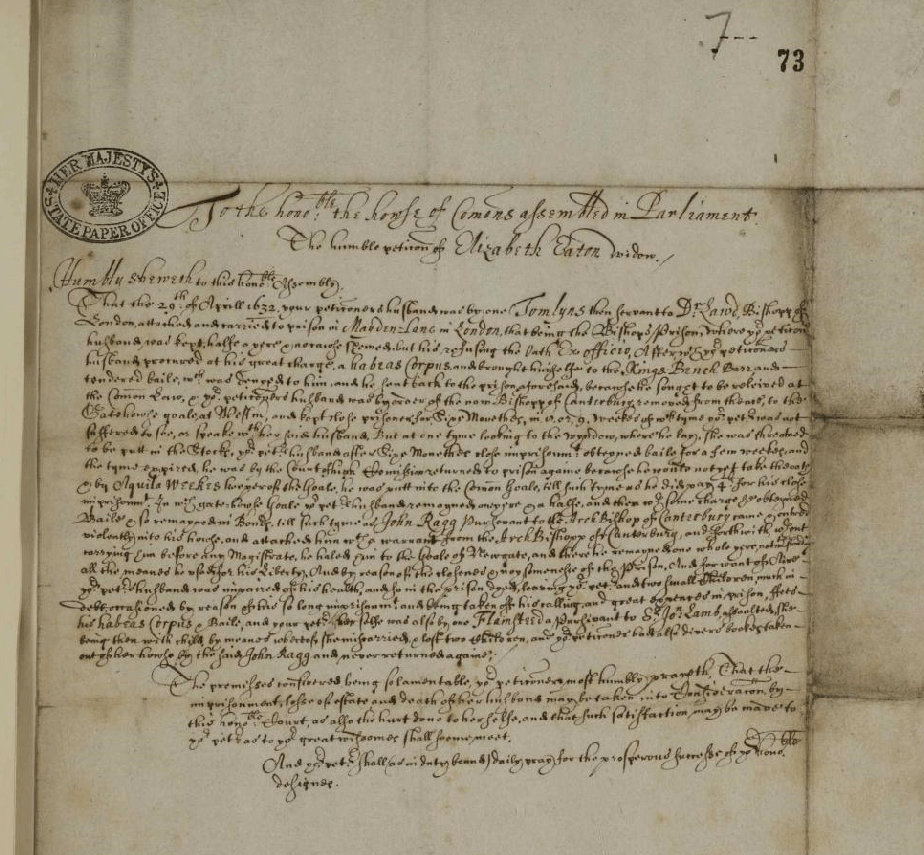 7--
73
HER MAJESTY'S
STATE PAPER OFFICE
To the hono:ble the howse of Comons assembled in Parliament
The humble peticon of Elizabeth Eaton widow./
Humbly sheweth to this hono:ble Assembly.
That the 29th of Aprill 1632. your peticoners husband was by one Tomlyns then servant to Dr Lawd, Bishopp of
London, attached and carried to prison in Mayden-Lane in London, that being the Bishops Prison, where yor peticonrs
husband was kept halfe a yere & no cause shewed, but his refusing the oath Ex officio, After wch yor peticoners
husband procured at his great charge, a habeas Corpus, and brought himselfe to the Kings Bench Barr, and
tendered baile, wch was denyed to him, and he sent back to the prison aforesaid, because he sought to be releived at
the Comon Law, & yor peticoners husband was by order of the now Bishopp of Canterbury, removed from thence, to the
Gatehowse goale at Westm, and kept close prisoner for Sixe Monethes, in 8. or 9. weekes of wch tyme yor petr was not
suffered to see, or speake wth her said husband, But at one tyme looking to the wyndow, where he lay, she was threatned
to be put in the Stocks, yor petrs husband after Sixe Monethes close imprisonmt obteyned baile for a few weekes, and
the tyme expired, he was by the Court of high Comission returned to prison againe because he would not yet take the oath
& by Aquila Weekes keeper of the Goale, he was put into the Comon Goale, till such tyme as he did pay 4li for his close
imprisonmt In wch gatehowse Goale yor petrs husband remayned a yere & a halfe, and then wth some charge he obteyned
Baile & so remayned in Bonds, till such tyme as John Ragg Pursevant to the Arch Bishop of Canterbury came & entred
violently into his howse, and attached him wth a warrant from the Arch Bishopp of Canterbury, and forthwith wthout
carrying him before any Magistrate, he haled him to the Goale of Newgate, and there he remayned one whole yere, notwthstanding
all the meanes he used for his Liberty, And by reason of the closenes & noysomenesse of the Prison, And for want of Aire
yor petrs husband was impaired of his health, and so in the prison dyed, leaving yor petr and two small Children, much in
debt, occasioned by reason of his so long imprisonmt and being taken off his calling, and great expences in prison, ffees
his habeas Corpus & Baile, and your petr her selfe was also by one Flamsteed a Pursivant to Sr Jo: Lamb, assaulted, she
being then with child, by meanes whereof she miscarried, & lost two Children, and yor peticoner had also divers bookes taken
out of her howse by the said John Ragg and never returned againe;
The premisses considered being so lamentable, yor peticoner most humbly prayeth, That the
imprisonment, losse of estate and death of her husband may be taken into Consideracon, by
this hono:ble Court, as also the hurt done to her selfe, and that such satisfaction may be made to
yor petr as to yor great wisdomes shall seeme meet.
And yor petr shall (as in duty bound) daily pray for the prosperous successe of yor hono:ble
designes.